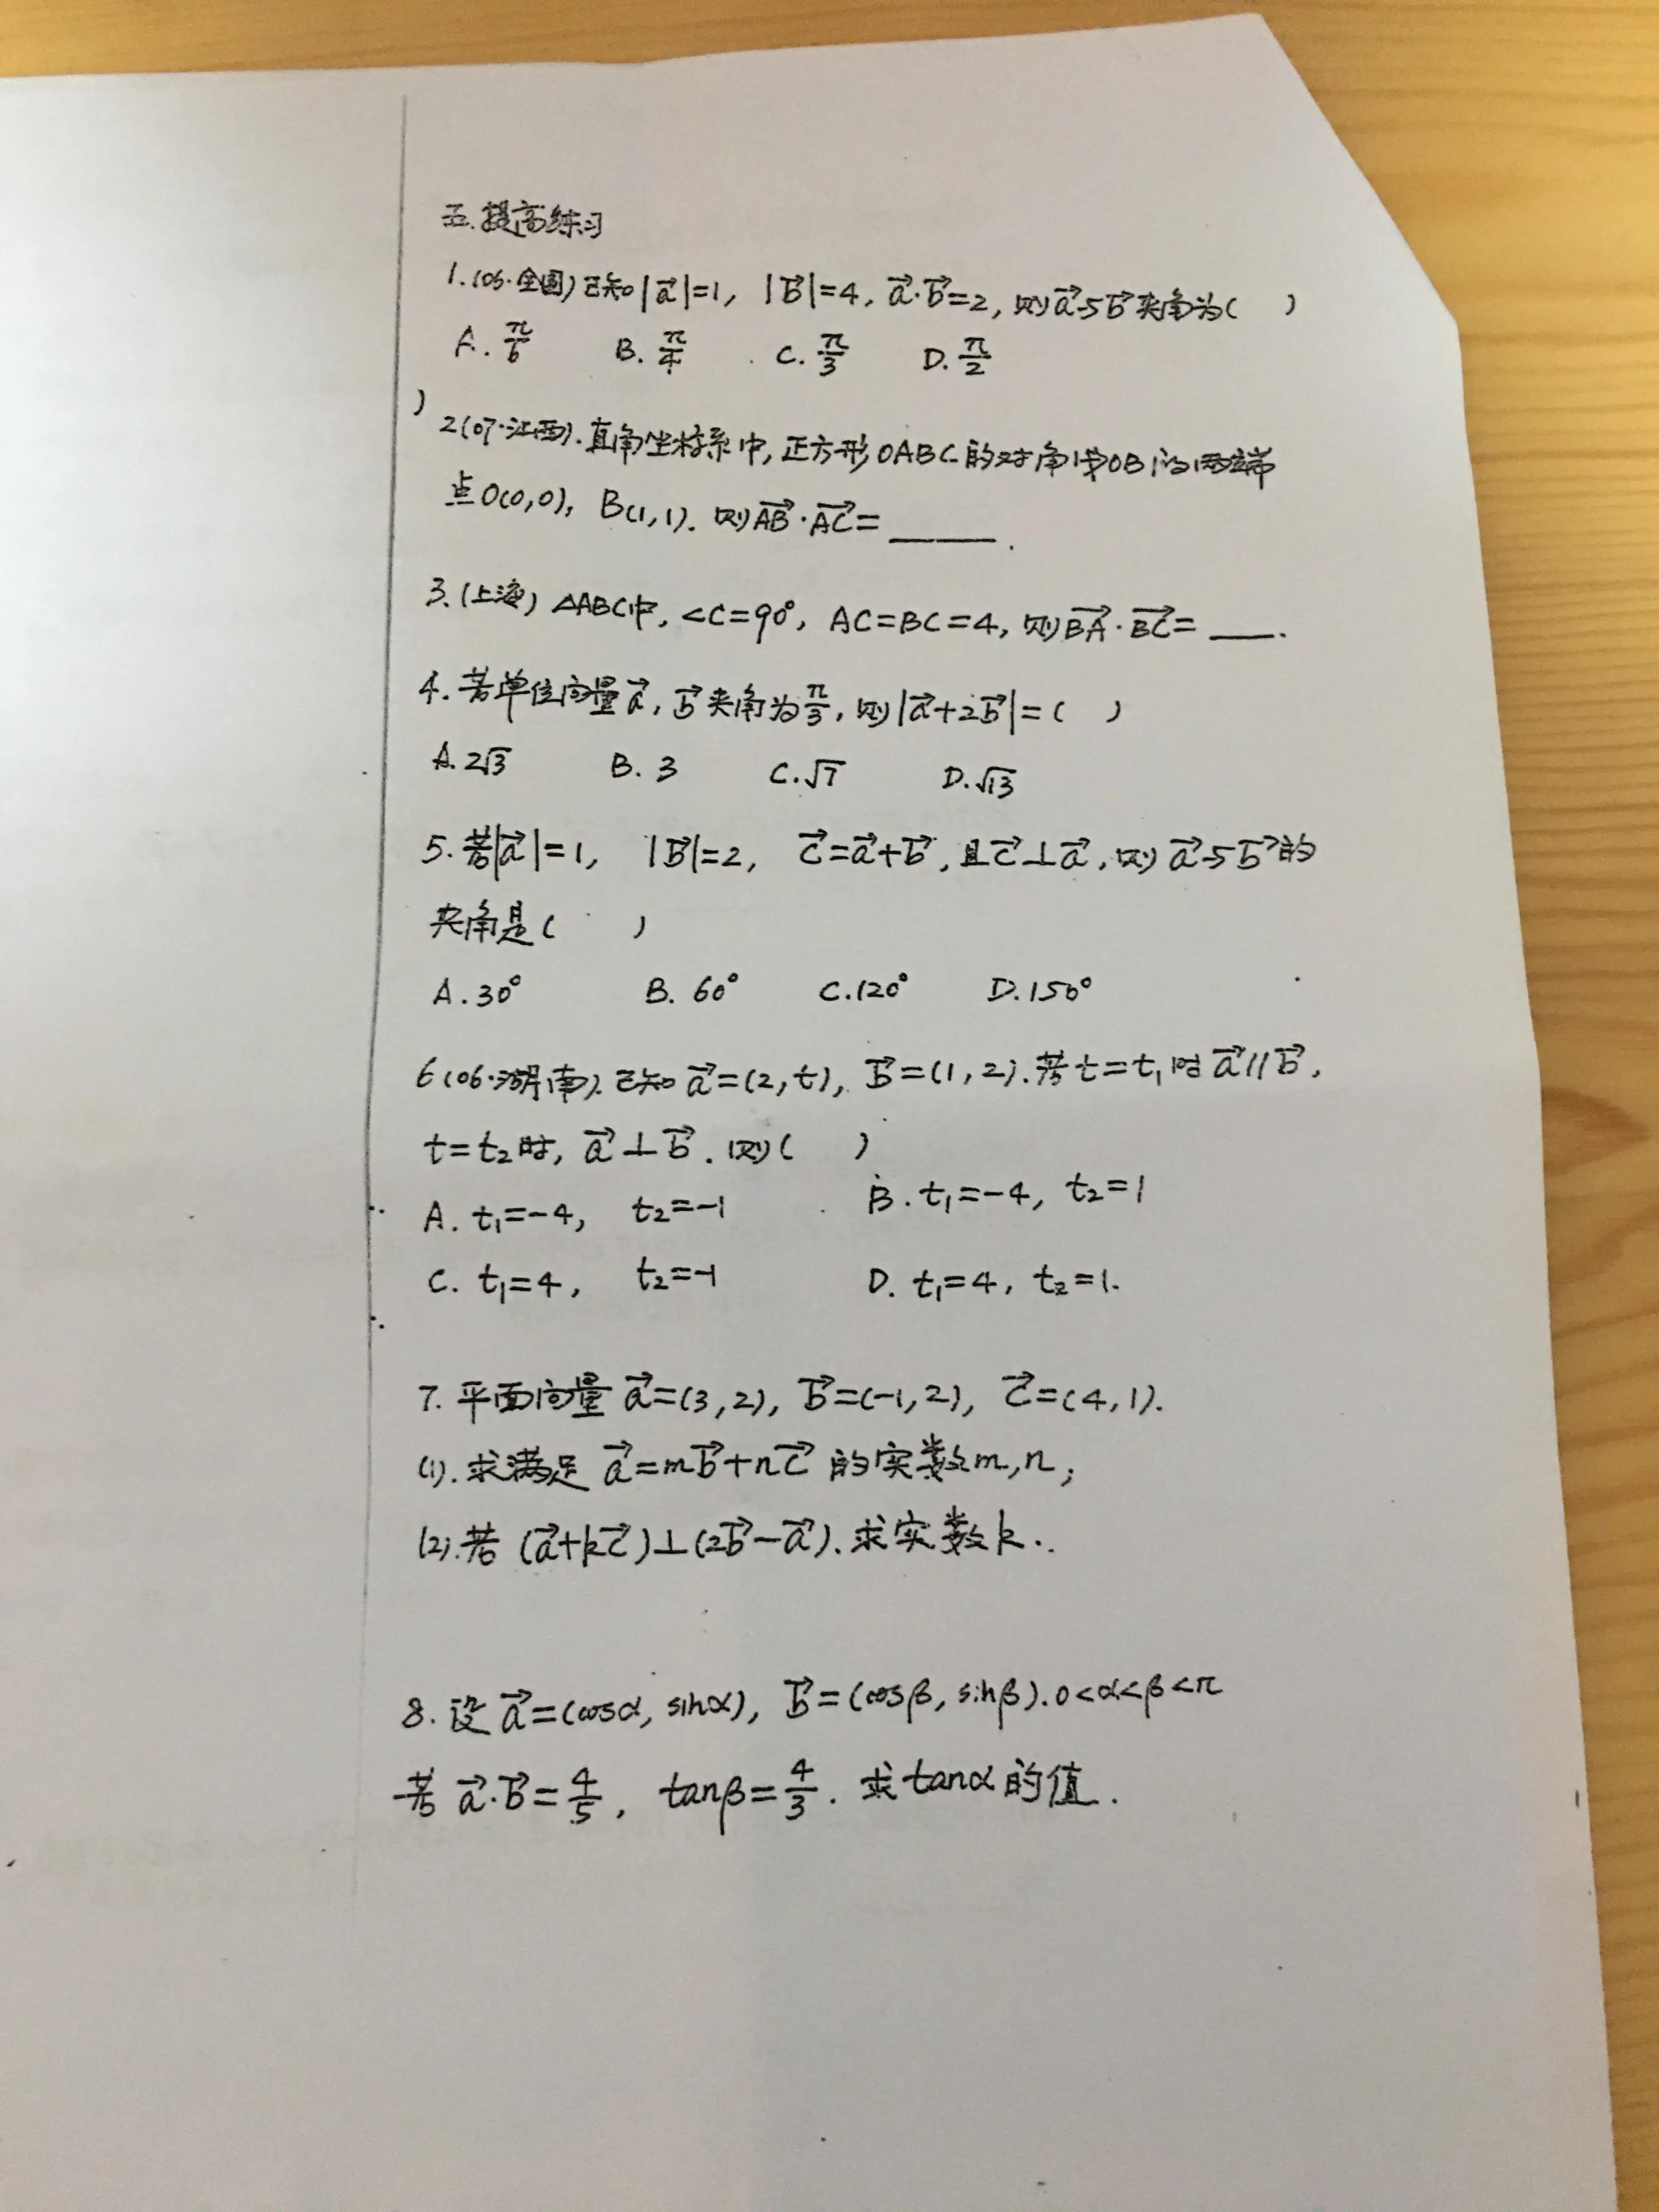 五.提高练习
1.(06·全国)已知|a⃗|=1, |b⃗|=4, a⃗·b⃗=2, 则a⃗与b⃗夹角为( )
A. π/6 B. π/4 C. π/3 D. π/2
)
2(07·江西).直角坐标系中,正方形OABC的对角线OB的两端
点O(0,0), B(1,1). 则AB⃗·AC⃗=____.
3.(上海) △ABC中, ∠C=90°, AC=BC=4, 则BA⃗·BC⃗=___.
4.若单位向量a⃗, b⃗夹角为π/3, 则|a⃗+2b⃗|=( )
A. 2√3 B. 3 C. √7 D. √13
5.若|a⃗|=1, |b⃗|=2, c⃗=a⃗+b⃗, 且c⃗⊥a⃗, 则a⃗与b⃗的
夹角是( )
A. 30° B. 60° C. 120° D. 150°
6(06·湖南).已知a⃗=(2,t), b⃗=(1,2).若t=t₁时a⃗∥b⃗,
t=t₂时, a⃗⊥b⃗. 则( )
A. t₁=-4, t₂=-1 B. t₁=-4, t₂=1
C. t₁=4, t₂=-1 D. t₁=4, t₂=1.
7.平面向量a⃗=(3,2), b⃗=(-1,2), c⃗=(4,1).
(1).求满足a⃗=mb⃗+nc⃗的实数m,n;
(2).若(a⃗+kc⃗)⊥(2b⃗-a⃗).求实数k.
8.设a⃗=(cosα, sinα), b⃗=(cosβ, sinβ).0<α<β<π
若a⃗·b⃗=4/5, tanβ=4/3. 求tanα的值.